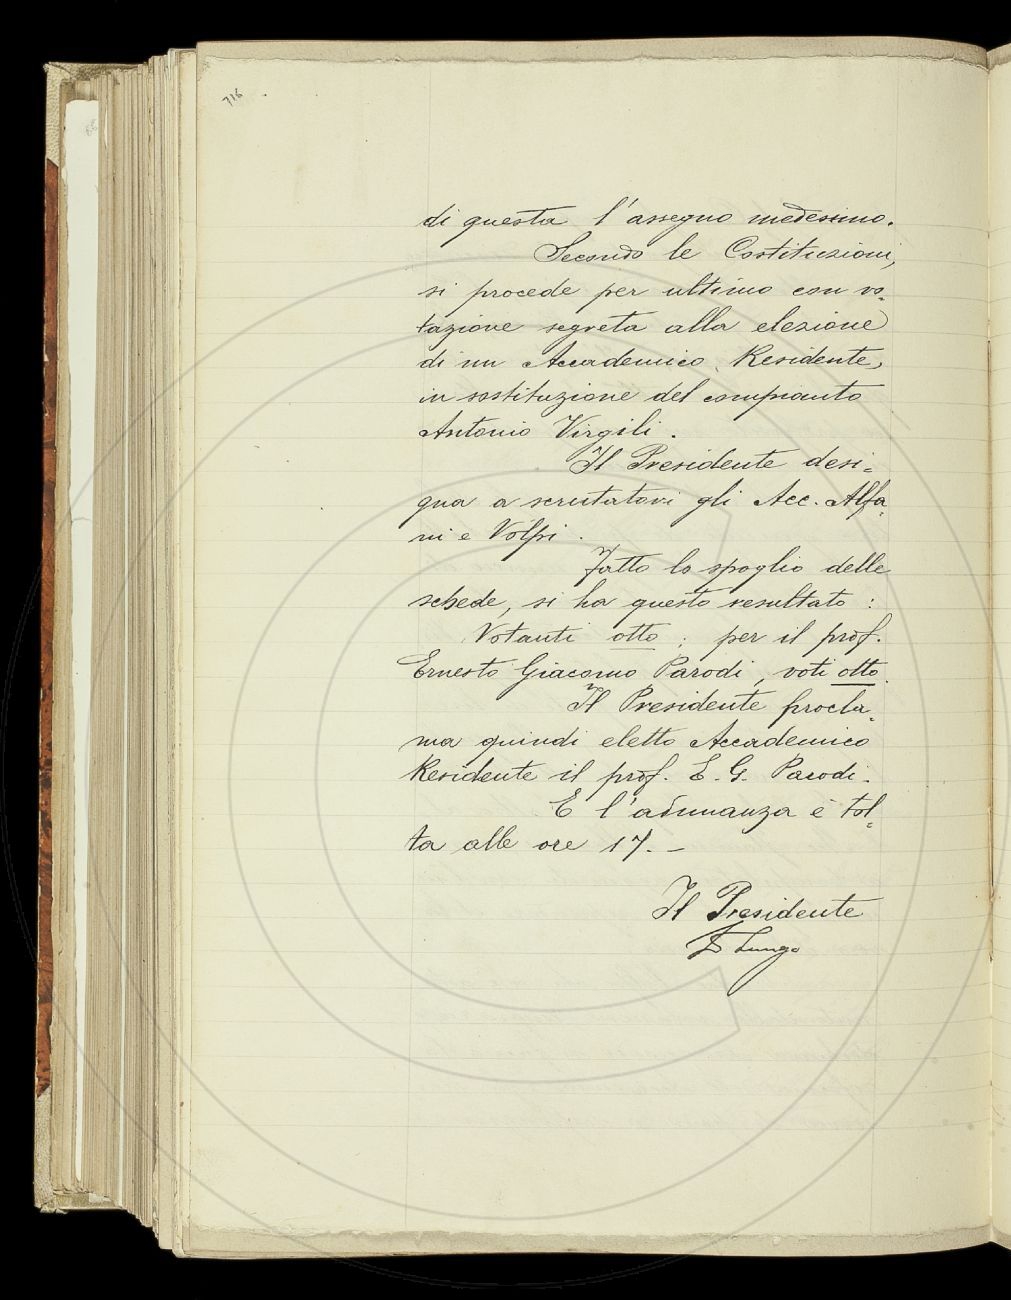 716
di questa l'assegno medesimo.
Secondo le Costituzioni,
si procede per ultimo con vo=
tazione segreta alla elezione
di un Accademico Residente,
in sostituzione del compianto
Antonio Virgili.
Il Presidente desi=
gna a scrutatori gli Acc. Alfa=
ni e Volpi.
Fatto lo spoglio delle
schede, si ha questo resultato:
Votanti otto; per il prof.
Ernesto Giacomo Parodi, voti otto.
Il Presidente procla=
ma quindi eletto Accademico
Residente il prof. E. G. Parodi.
E l'adunanza è tol=
ta alle ore 17. –
Il Presidente
Lungo